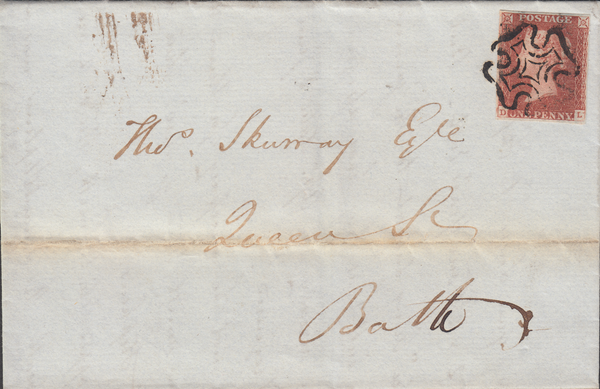 POSTAGE
D ONE PENNY L
Thos. Skurray Esqe
Queen St
Bath